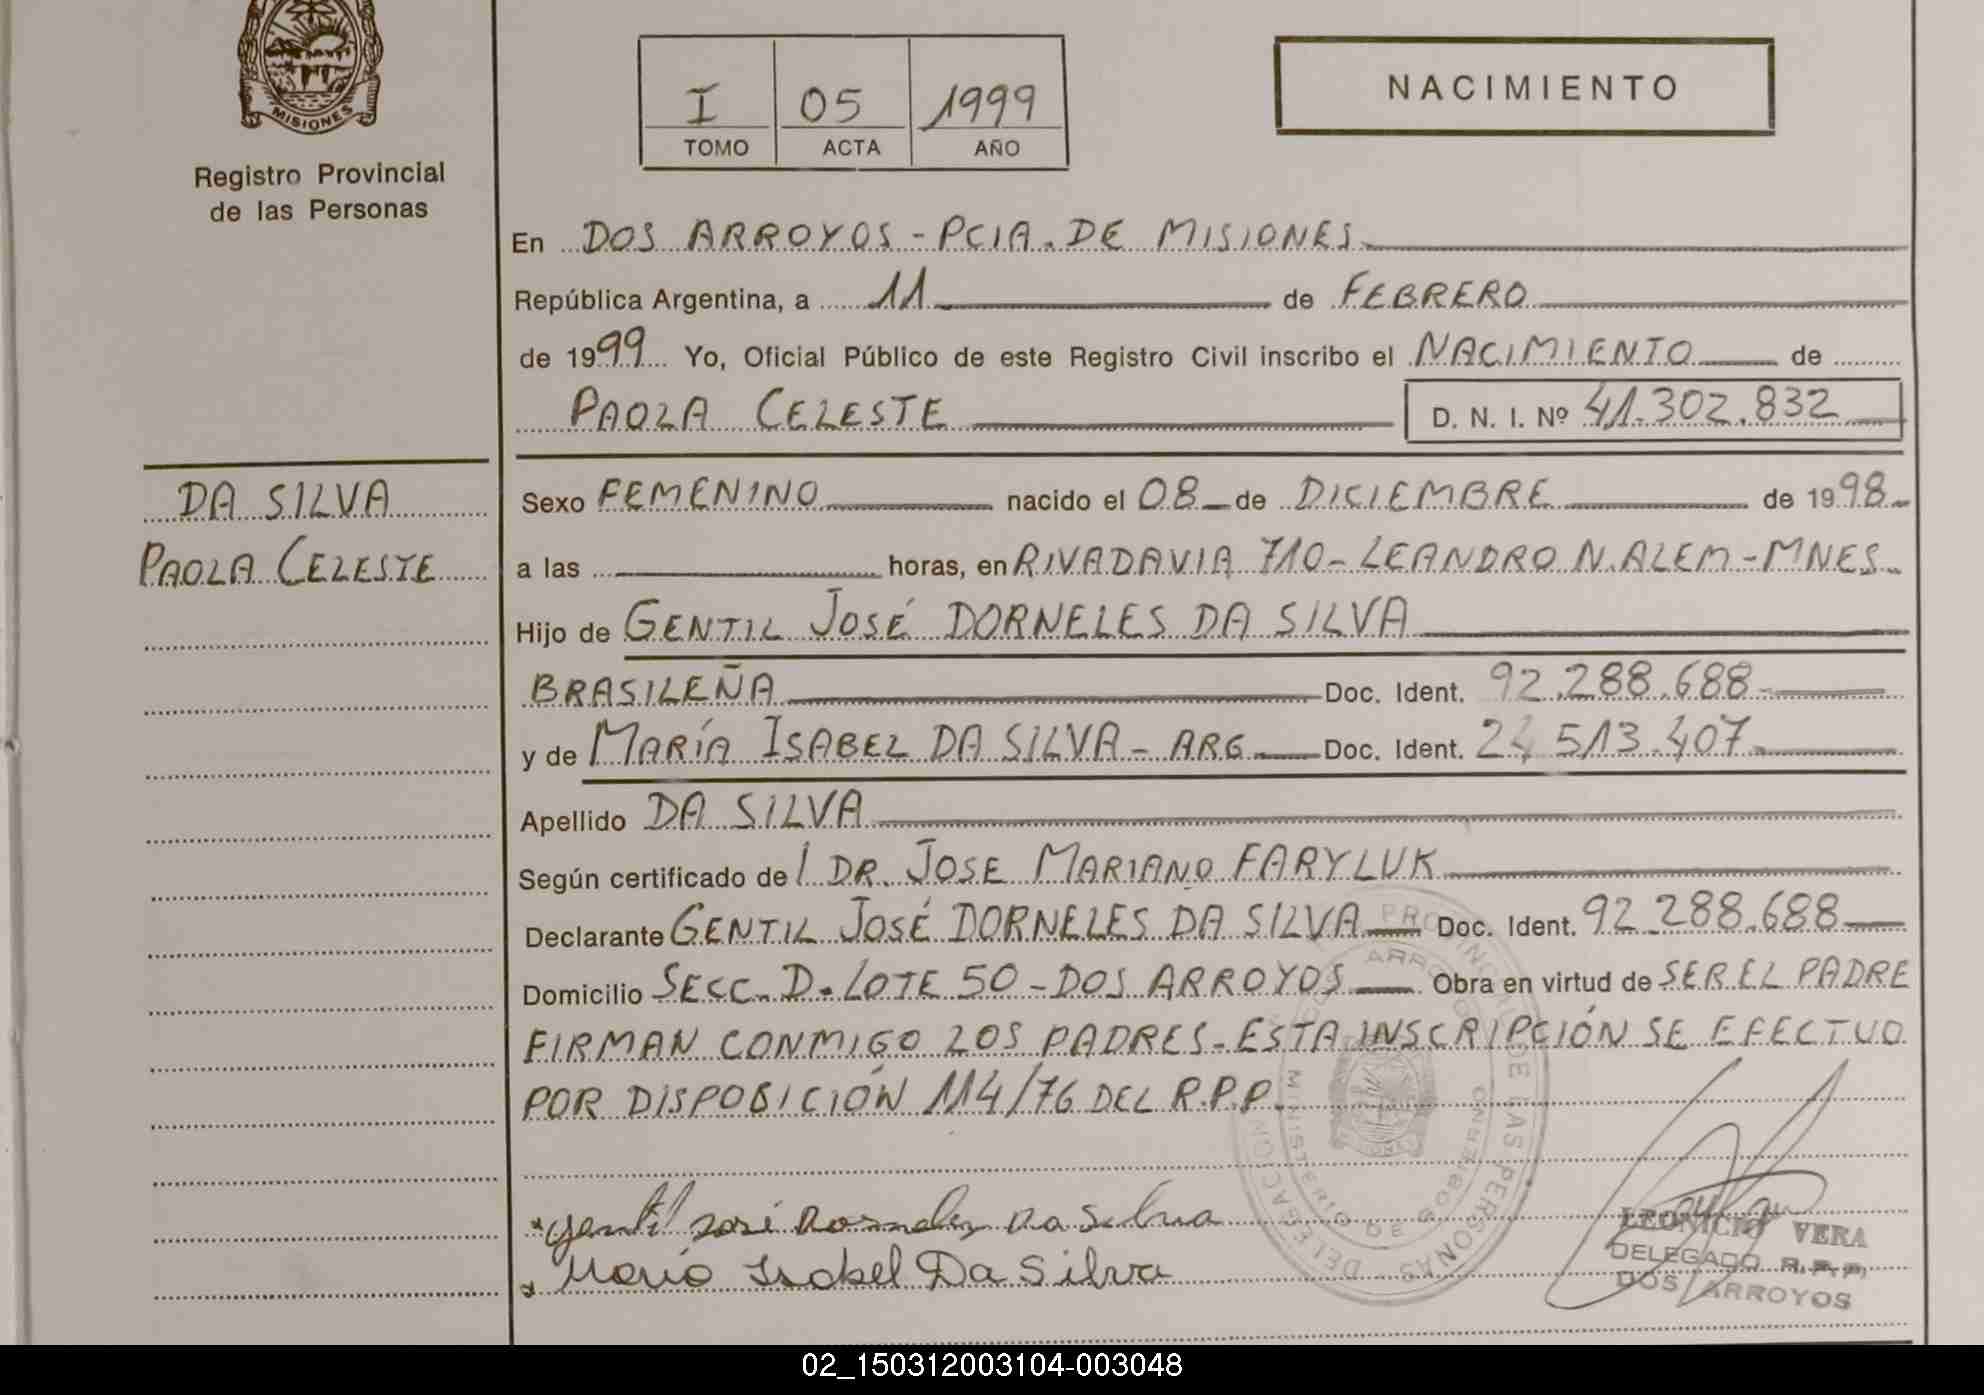 MISIONES
Registro Provincial
de las Personas
I 05 1999
TOMO ACTA AÑO
NACIMIENTO
En DOS ARROYOS - PCIA. DE MISIONES.
República Argentina, a 11 de FEBRERO
de 1999 Yo, Oficial Público de este Registro Civil inscribo el NACIMIENTO de
PAOLA CELESTE D. N. I. Nº 41.302.832
DA SILVA
PAOLA CELESTE
Sexo FEMENINO nacido el 08 de DICIEMBRE de 1998
a las horas, en RIVADAVIA 710 - LEANDRO N. ALEM - MNES.
Hijo de GENTIL JOSÉ DORNELES DA SILVA
BRASILEÑA Doc. Ident. 92.288.688
y de MARÍA ISABEL DA SILVA - ARG Doc. Ident. 24 513.407
Apellido DA SILVA
Según certificado de l DR. JOSE MARIANO FARYLUK
Declarante GENTIL JOSÉ DORNELES DA SILVA Doc. Ident. 92.288.688
Domicilio SECC. D. LOTE 50 - DOS ARROYOS Obra en virtud de SER EL PADRE
FIRMAN CONMIGO LOS PADRES. ESTA INSCRIPCIÓN SE EFECTUO
POR DISPOSICIÓN 114/76 DEL R.P.P.
Gentil José Dorneles Da Silva
María Isabel Da Silva
PROVINCIAL DE LAS PERSONAS - DELEGACION
DOS ARROYOS
MINISTERIO DE GOBIERNO
LEONICIO VERA
DELEGADO R.P.P.
DOS ARROYOS
02_150312003104-003048